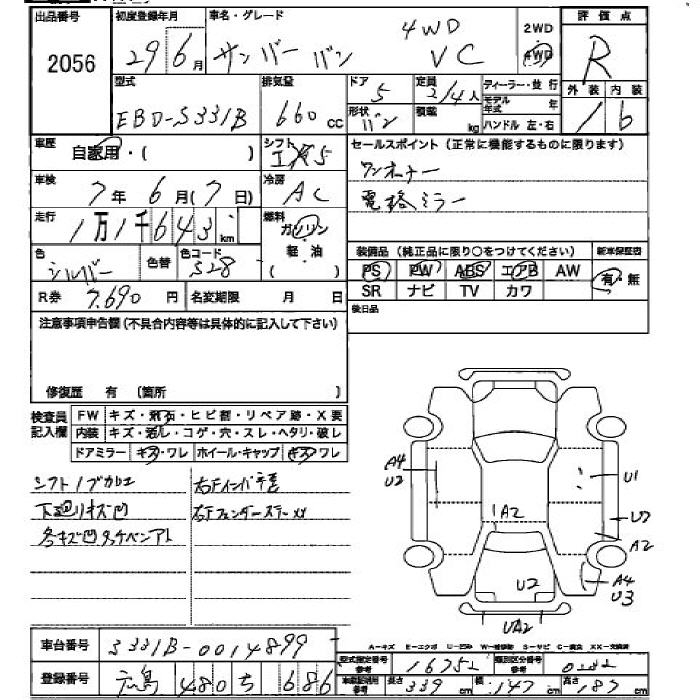 出品番号 初度登録年月 車名・グレード 4WD 2WD 評価点
2056 29 6月 サンバー バン VC 4WD R
型式 排気量 ドア 定員 ディーラー・並行 外装 内装
EBD-S331B 660cc 5 2/4人 モデル年式 年
形状 バン 積載 kg ハンドル 左・右 / 6
車歴 自家用・( ) シフト
セールスポイント (正常に機能するものに限ります)
車検 7年6月(7日) 冷房 AC ワンオーナー
走行 1万1千643km 燃料 ガソリン 電格ミラー
軽・油
( )
色 シルバー 色替 色コード S28
装備品 (純正品に限り○をつけてください) 新車保証書
PS PW ABS エアB AW 有・無
SR ナビ TV カワ
R券 7,690円 名変期限 月 日
後日品
注意事項申告欄 (不具合内容等は具体的に記入して下さい)
修復歴 有 (箇所 )
検査員記入欄 FW キズ・飛石・ヒビ割・リペア跡・X要
内装 キズ・汚レ・コゲ・穴・スレ・ヘタリ・破レ
ドアミラー キズ・ワレ ホイール・キャップ キズ・ワレ
シフトノブカワエ
下廻りキズ凹
A4 U2 U1
A2 U7
A2
U2 A4 U3
UA2
A=キズ E=エクボ U=凹ミ W=補修跡 S=サビ C=腐食 XX=交換済
車台番号 S331B-0014899
登録番号 広島 480 ち 686
型式指定番号 参考 16752 類別区分番号 参考
車庫証明用 参考 長さ 339cm 幅 147cm 高さ 187cm